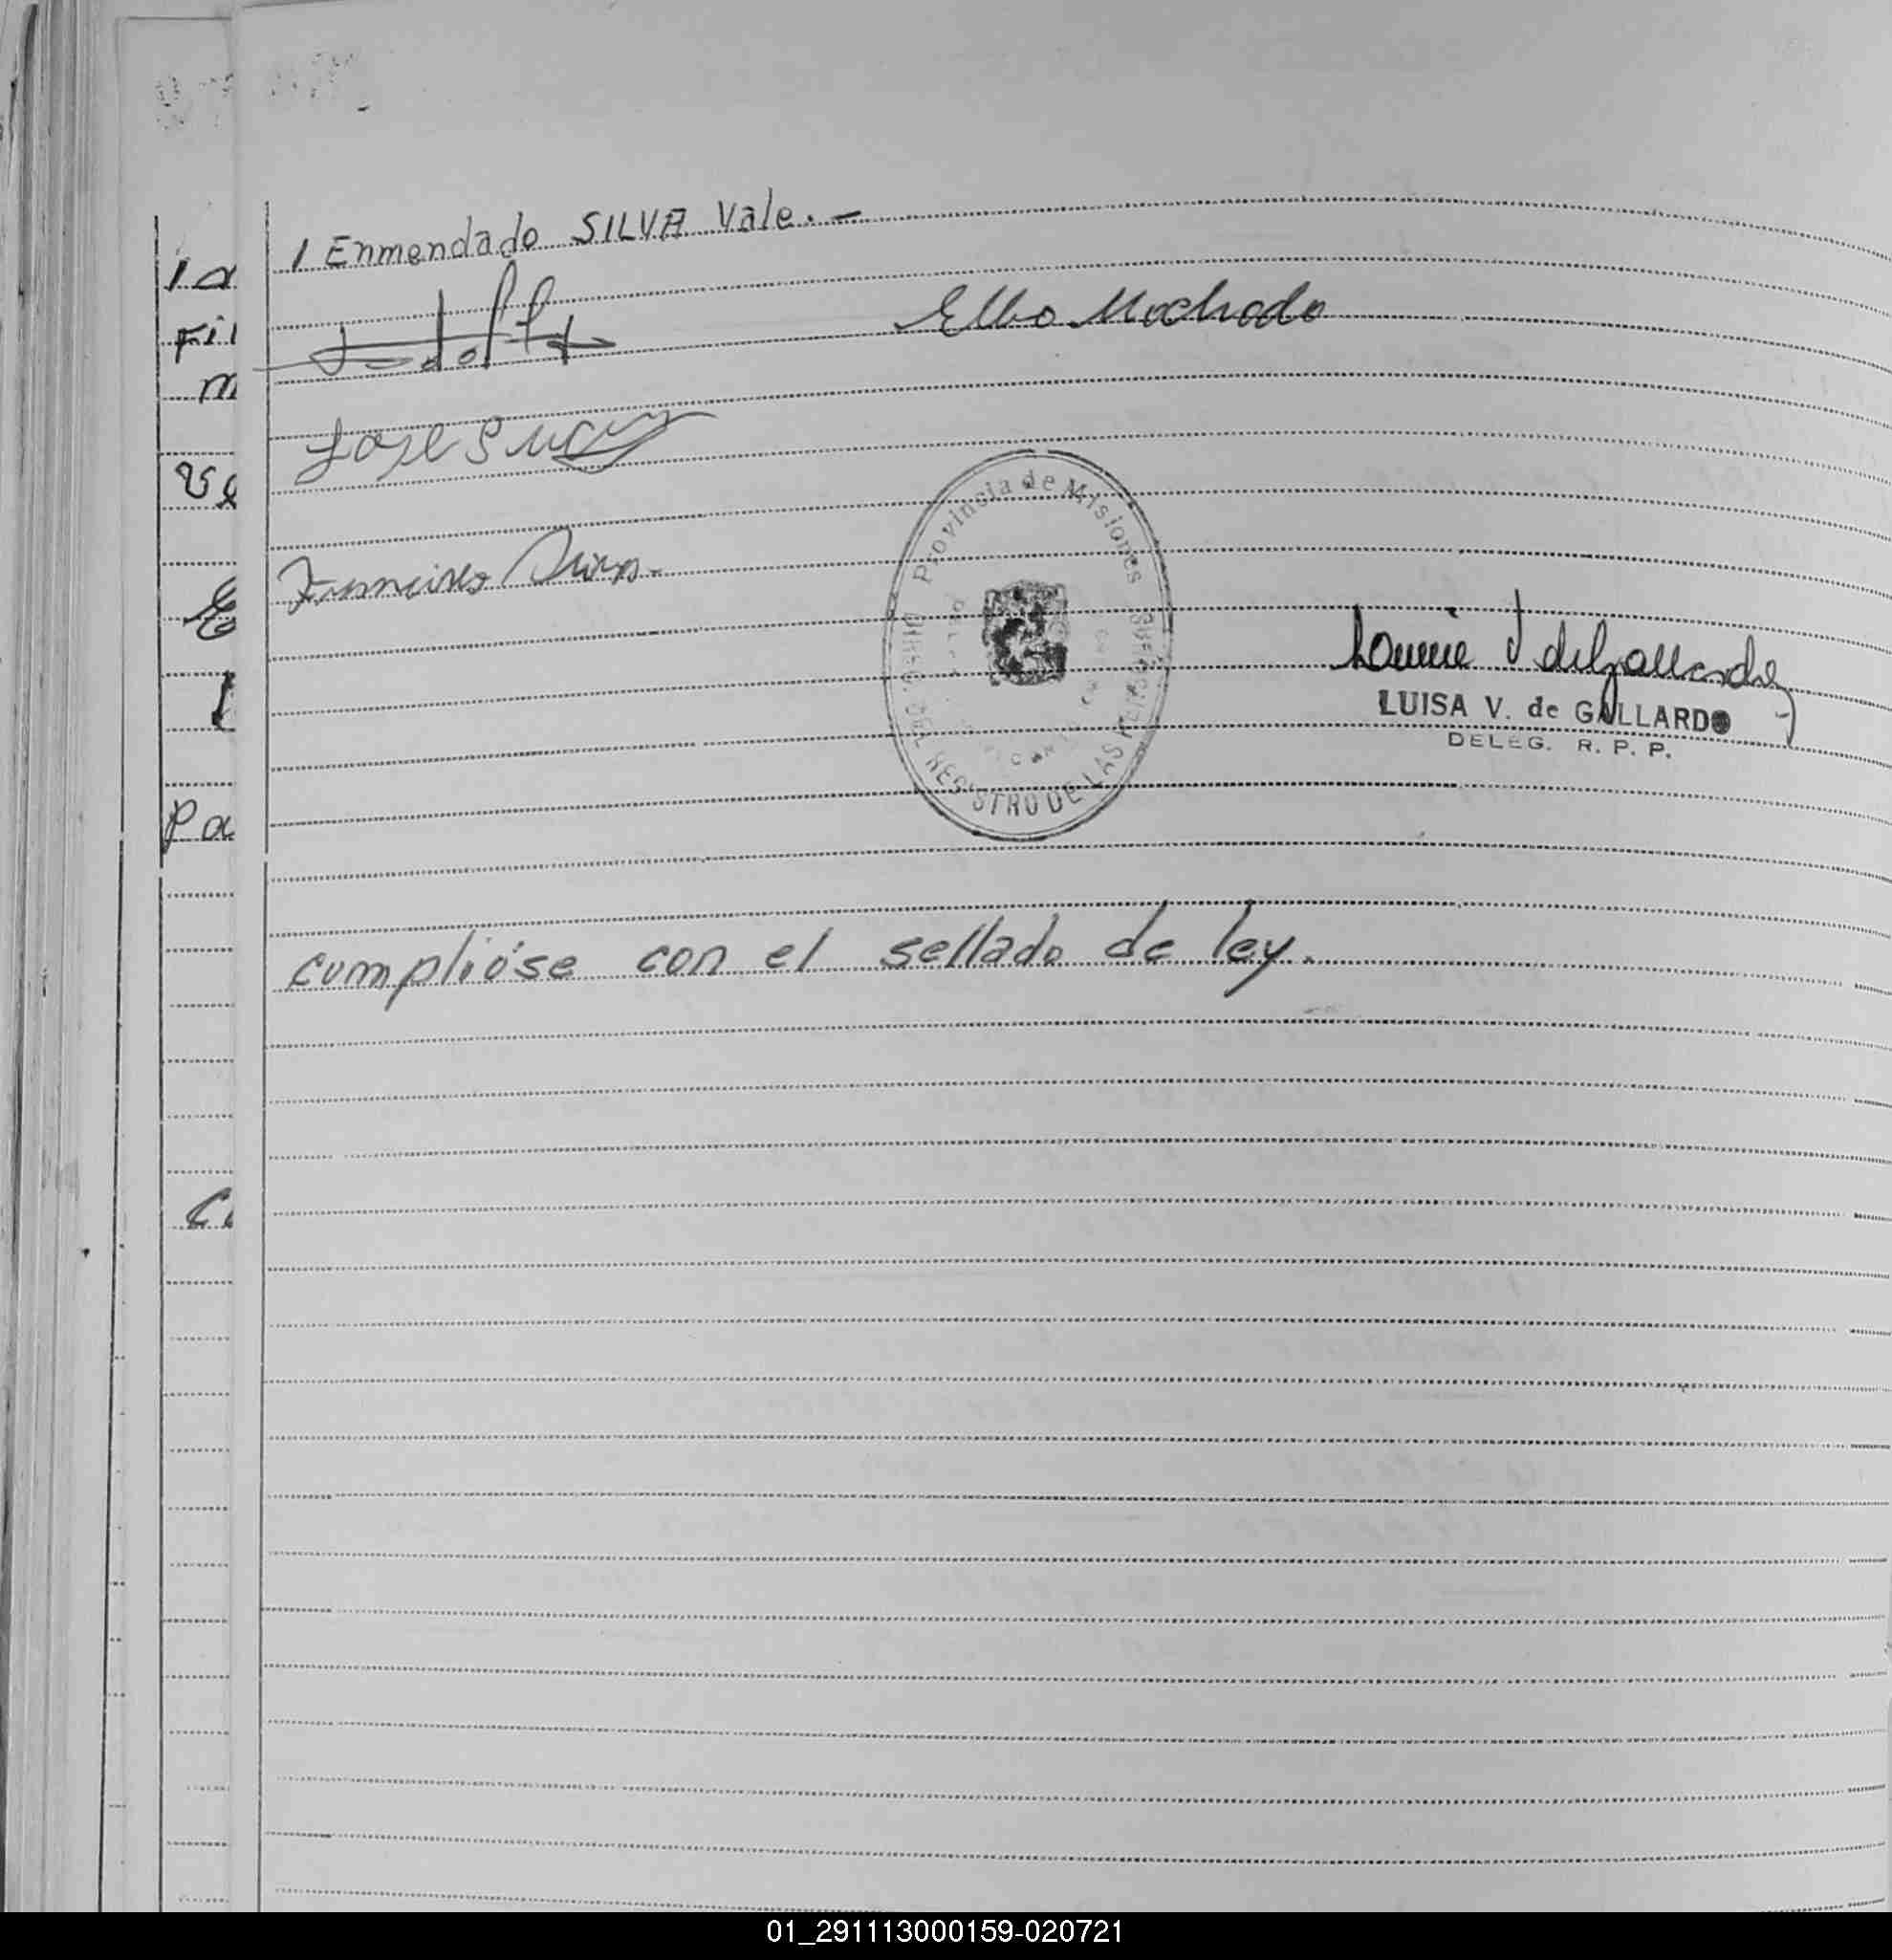 1 Enmendado SILVA Vale. -
Elbo Machado
Jose
Francisco
Provincia de Misiones
DIREC. DEL REGISTRO DE LAS PERSONAS
LUISA V. de GALLARDO
DELEG. R. P. P.
cumplióse con el sellado de ley.
1a
Fil
m
Pa
01_291113000159-020721